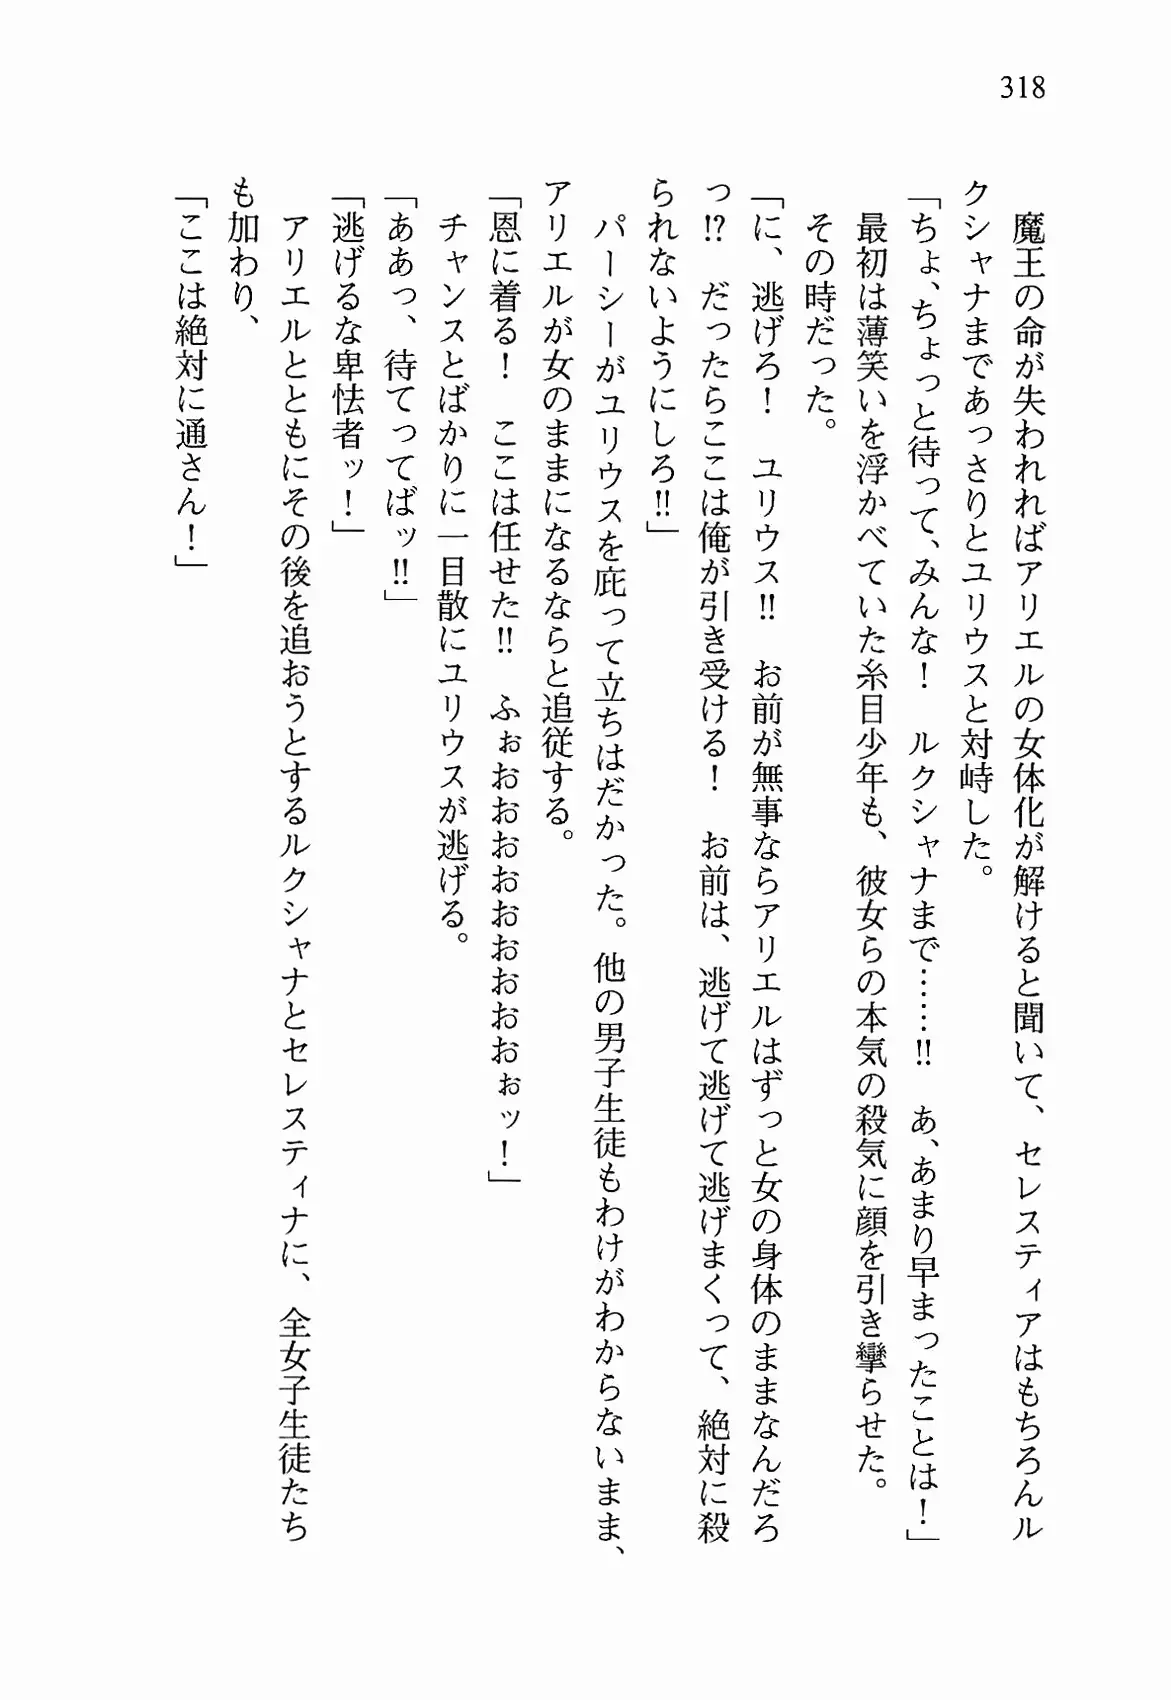 318
　魔王の命が失われればアリエルの女体化が解けると聞いて、セレスティアはもちろんル
クシャナまであっさりとユリウスと対峙した。
「ちょ、ちょっと待って、みんな！　ルクシャナまで……!!　あ、あまり早まったことは！」
　最初は薄笑いを浮かべていた糸目少年も、彼女らの本気の殺気に顔を引き攣らせた。
　その時だった。
「に、逃げろ！　ユリウス!!　お前が無事ならアリエルはずっと女の身体のままなんだろ
っ!?　だったらここは俺が引き受ける！　お前は、逃げて逃げて逃げまくって、絶対に殺
られないようにしろ!!」
　パーシーがユリウスを庇って立ちはだかった。他の男子生徒もわけがわからないまま、
アリエルが女のままになるならと追従する。
「恩に着る！　ここは任せた!!　ふぉおおおおおおおおおぉッ！」
　チャンスとばかりに一目散にユリウスが逃げる。
「ああっ、待てってばッ!!」
「逃げるな卑怯者ッ！」
　アリエルとともにその後を追おうとするルクシャナとセレスティナに、全女子生徒たち
も加わり、
「ここは絶対に通さん！」